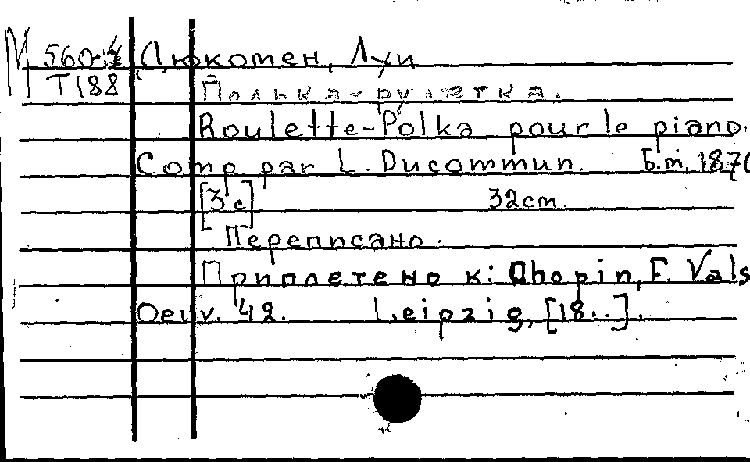 М 560-4 Дюкомен, Луи
Т188 Полька-рулетка.
Roulette-Polka pour le piano.
Comp. par L. Ducommun. Б.м. 1870
[3 с] 32cm.
Переписано.
Приплетено к: Chopin, F. Vals
Oeuv. 42. Leipzig, [18..].